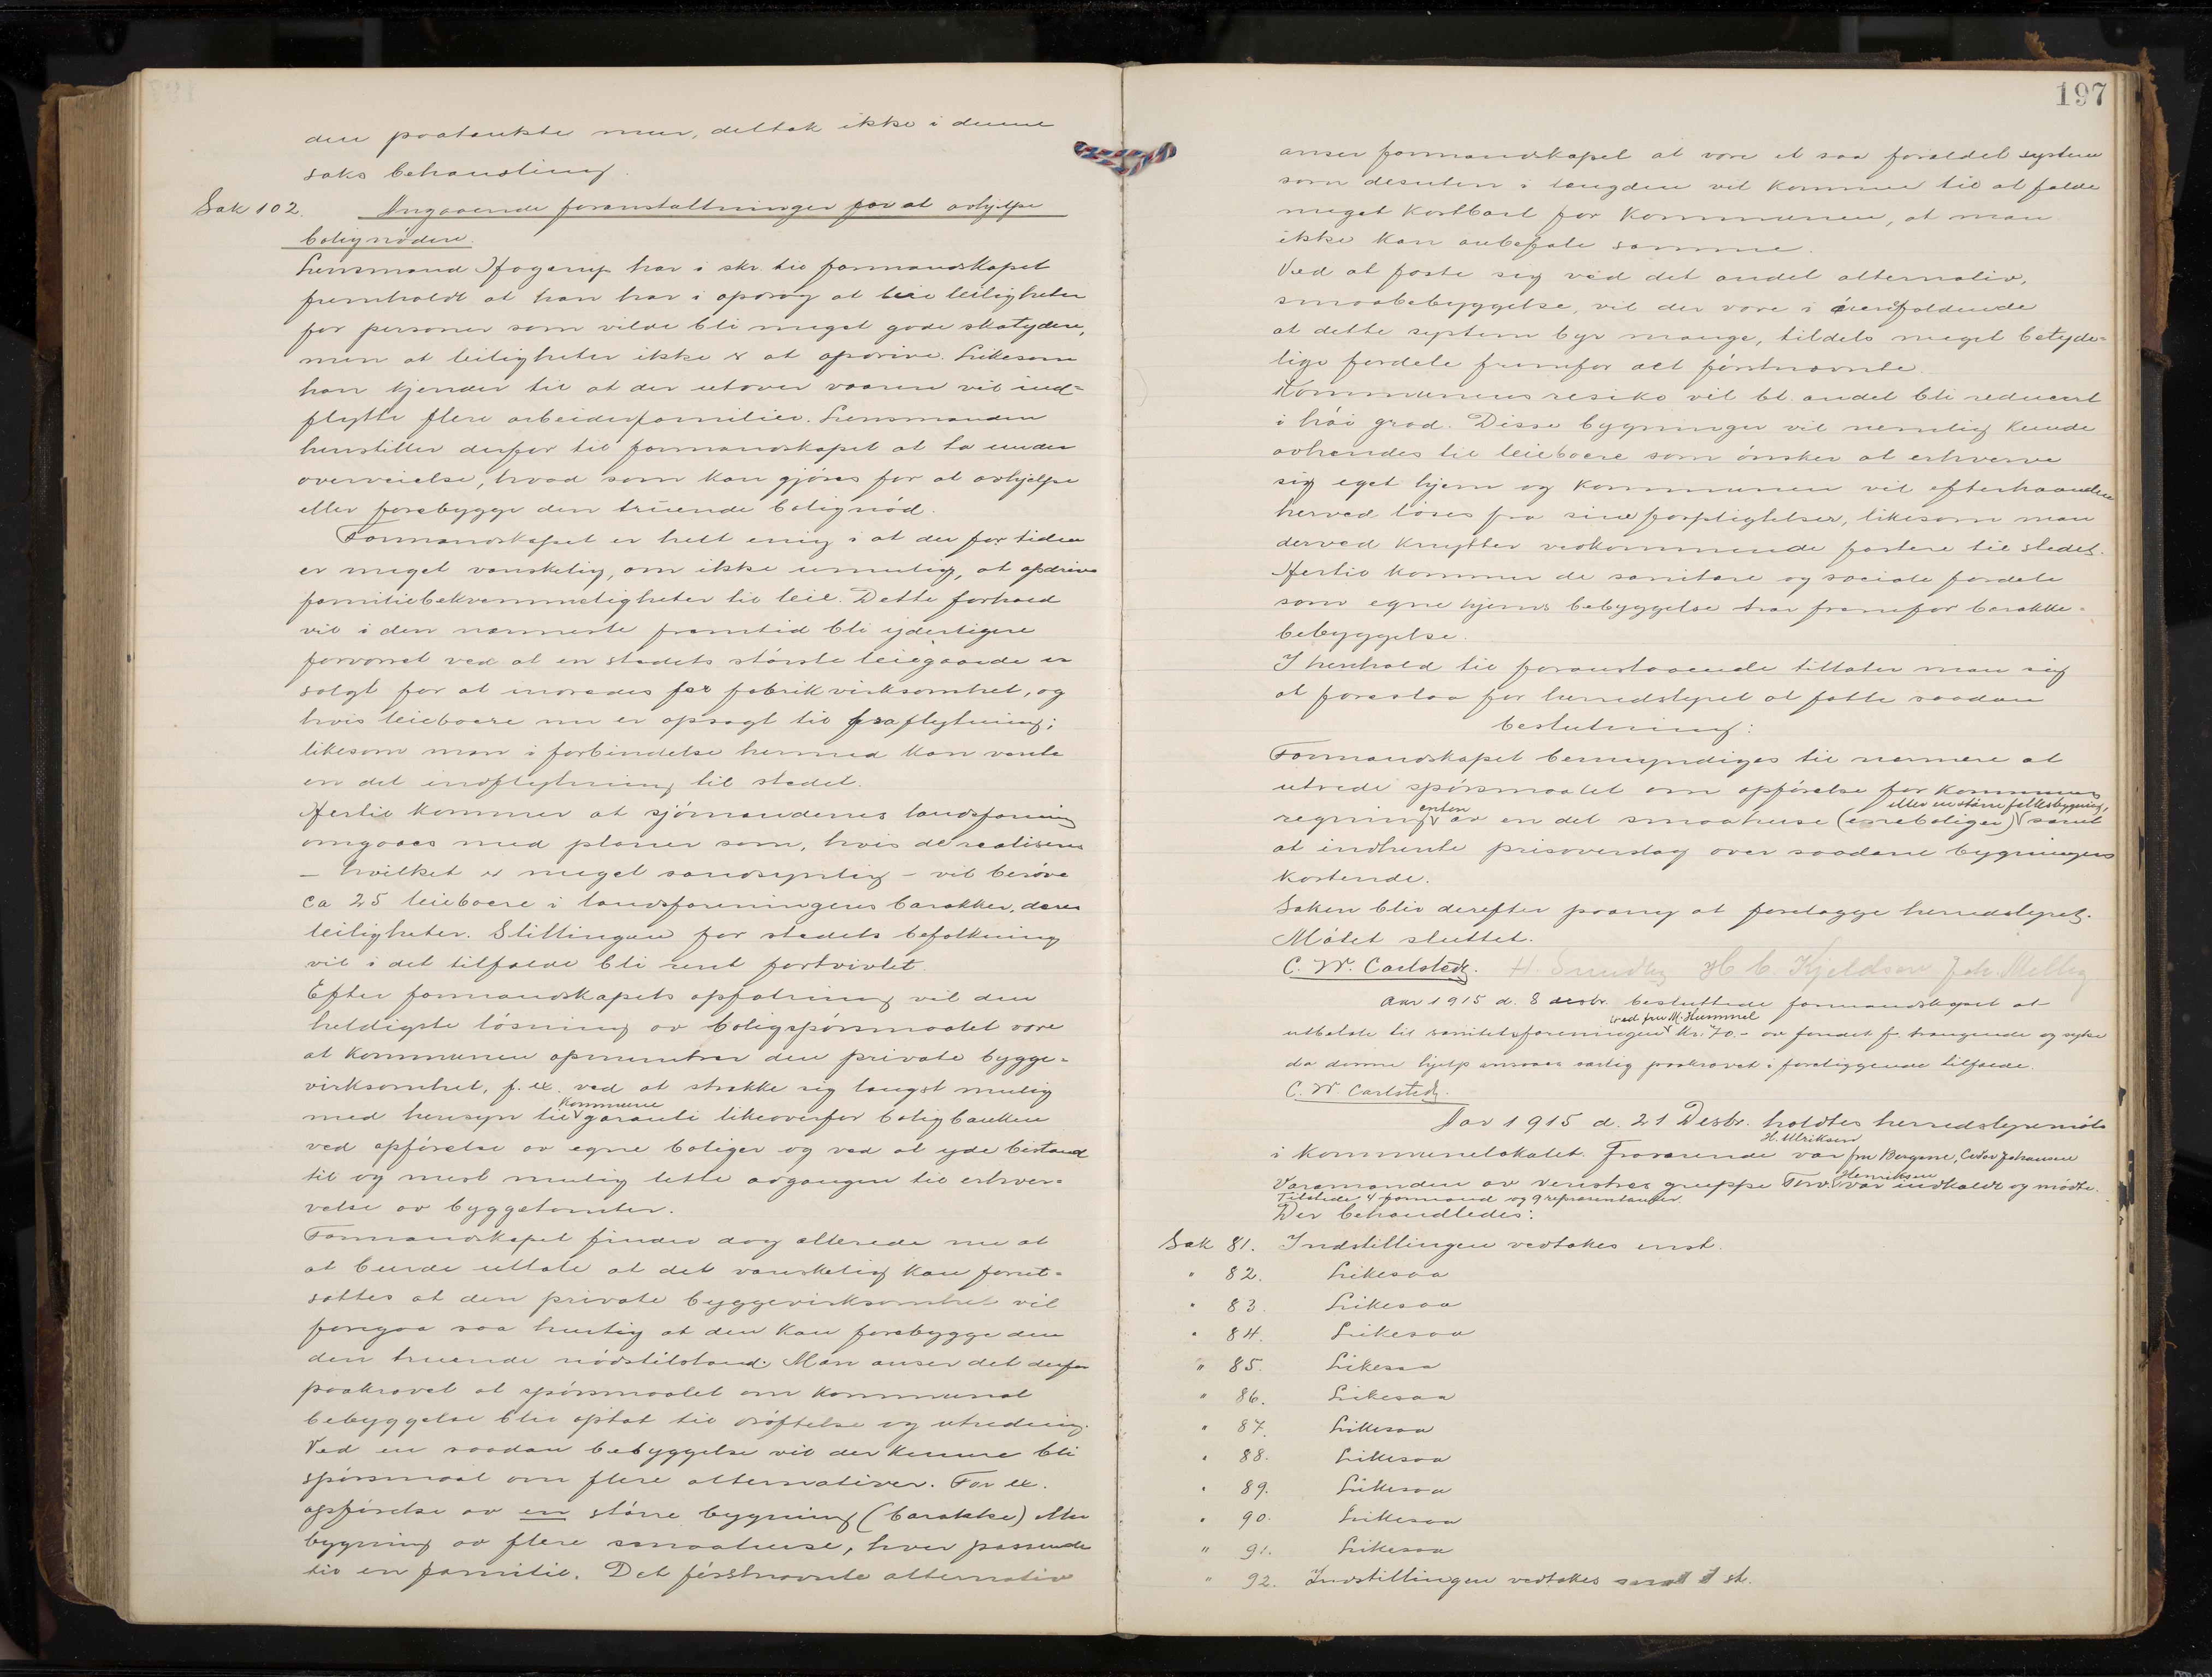 den paatænkte mur, deltok ikke i denne
saks behandling.
Sak 102. Angaaende foranstaltninger for at avhjelpe
bolignöden.
Lensmand Fagerup har i skr. til formandskapet
fremholdt at han har i opdrag at leie leiligheter
for personer som vilde bli meget gode skatydere,
men at leiligheter ikke er at opdrive. Likesom
han kjender til at der utover vaaren vil ind-
flytte flere arbeiderfamilier. Lensmanden
henstiller derfor til formandskapet at ta under
overveielse, hvad som kan gjöres for at avhjelpe
eller forebygge den truende bolignöd.
Formandskapet er helt enig i at der for tiden
er meget vanskelig, om ikke umulig, at opdrive
familiebekvemmeligheter til leie. Dette forhold
vil i den nærmeste framtid bli yderligere
forværret ved at en stedets störste leiegaarde er
solgt for at inredes for fabrikvirksomhet, og
hvis leieboere nu er opsagt til fraflytning;
likesom man i forbindelse hermed kan vente
en del indflytning til stedet.
Hertil kommer at sjömandenes landsforening
omgaaes med planer som, hvis de realiseres
– hvilket er meget sandsynlig – vil beröve
ca 25 leieboere i landsforeningens barakker, deres
leiligheter. Stillingen for stedets befolkning
vil i det tilfælde bli rent fortvivlet.
Efter formandskapets opfatning vil den
heldigste lösning av boligspörsmaalet være
at kommunen opmuntrer den private bygge-
virksomhet, f. ex. ved at strække sig længst mulig
med hensyn til kommune garanti likeoverfor boligbanken
ved opförelse av egne boliger og ved at yde bistand
til og mest mulig lette adgangen til erhver-
velse av byggetomter.
Formandskapet finder dog allerede nu at
at burde uttale at det vanskelig kan forut-
sættes at den private byggevirksomhet vil
foregaa saa hurtig at den kan forebygge den
den truende nödstilstand. Man anser det derfor
paakrævet at spörsmaalet om kommunal
bebyggelse blir optat til dröftelse og utredning.
Ved en saadan bebyggelse vil der kunne bli
spörsmaal om flere alternativer. For ex.
opförelse av en större bygning (barakke) eller
bygning av flere smaahuse, hver passende
til en familie. Det förstnævnte alternativ
197
anser formandskapet at være et saa forældet system
som desuten i længden vil komme til at falde
meget kostbart for kommunen, at man
ikke kan anbefale samme.
Ved at feste sig ved det andet alternativ,
smaabebyggelse, vil der være i öienfaldende
at dette system byr mange, tildels meget betyde-
lige fordele fremfor det förstnævnte.
Kommunens resiko vil bl. andet bli reducert
i höi grad. Disse bygninger vil nemlig kunde
avhendes til leieboere som önsker at erhverve
sig eget hjem og kommunen vil efterhaanden
herved löses fra sine forpligtelser, likesom man
derved knytter vedkommende fastere til stedet.
Hertil kommer de sanitære og sociale fordele
som egne hjems bebyggelse har fremfor barakke-
bebyggelse.
I henhold til foranstaaende tillater man sig
at foreslaa for herredstyret at fatte saadan
beslutning:
Formandskapet bemyndiges til nærmere at
utrede spörsmaalet om opförelse for kommunens
regning enten av en del smaahuse (eneboliger) eller en större fællesbygning, samt
at indhente prisoverslag over saadane bygningers
kostende.
Saken blir derefter paany at forelægge herredstyret.
Mötet sluttet.
C. W. Carlstedt. H. Sundby H. C. Kjeldsen Joh. Melby
Aar 1915 d. 8 desbr. besluttede formandskapet at
utbetale til sanitetsforeningen ved fru M. Hummel kr. 70.- av fondet f. trængende og syke
da denne hjelp ansaaes særlig paakrævet i foreliggende tilfælde.
C. W. Carlstedt.
Aar 1915 d. 21 Desbr. holdtes herredstyremöte
i kommunelokalet. Fraværende var H. Ulriksen fru Bergene, Cedor Johansen
Varamanden av venstres gruppe Torv. Henriksen var indkaldt og mödte.
Tilstede 4 formænd og 9 repræsentanter.
Der behandledes:
Sak 81. Indstillingen vedtokes enst.
" 82. Likesaa
" 83. Likesaa
" 84. Likesaa
" 85. Likesaa
" 86. Likesaa
" 87. Likesaa
" 88. Likesaa
" 89. Likesaa
" 90. Likesaa
" 91. Likesaa
" 92. Indstillingen vedtokes st.